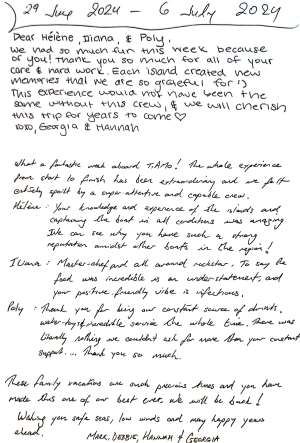 29 June 2024 - 6 July 2024
Dear Hélène, Iliana, & Poly,
We had so much fun this week because
of you! Thank you so much for all of your
care & hard work. Each island created new
memories that we are so grateful for :)
This experience would not have been the
same without this crew, & we will cherish
this trip for years to come ♡
xoxo, Georgia & Hannah
What a fantastic week aboard The whole experience
from start to finish has been extraordinary and we felt
entirely spoilt by a super attentive and capable crew.
Hélène: Your knowledge and experience of the islands and
captaining the boat in all conditions was amazing.
We can see why you have such a strong
reputation amidst other boats in the region!
Iliana: Master-chef and all around rockstar. To say the
food was incredible is an under-statement, and
your positive friendly vibe is infectious.
Poly: Thank you for being our constant source of drinks,
water-toys & incredible service the whole time. There was
literally nothing we couldn't ask for more than your constant
support... Thank you so much.
These family vacations are such precious times and you have
made this one of our best ever. We will be back!
Wishing you safe seas, low winds and many happy years
ahead.
Mark, Debbie, Hannah & Georgia